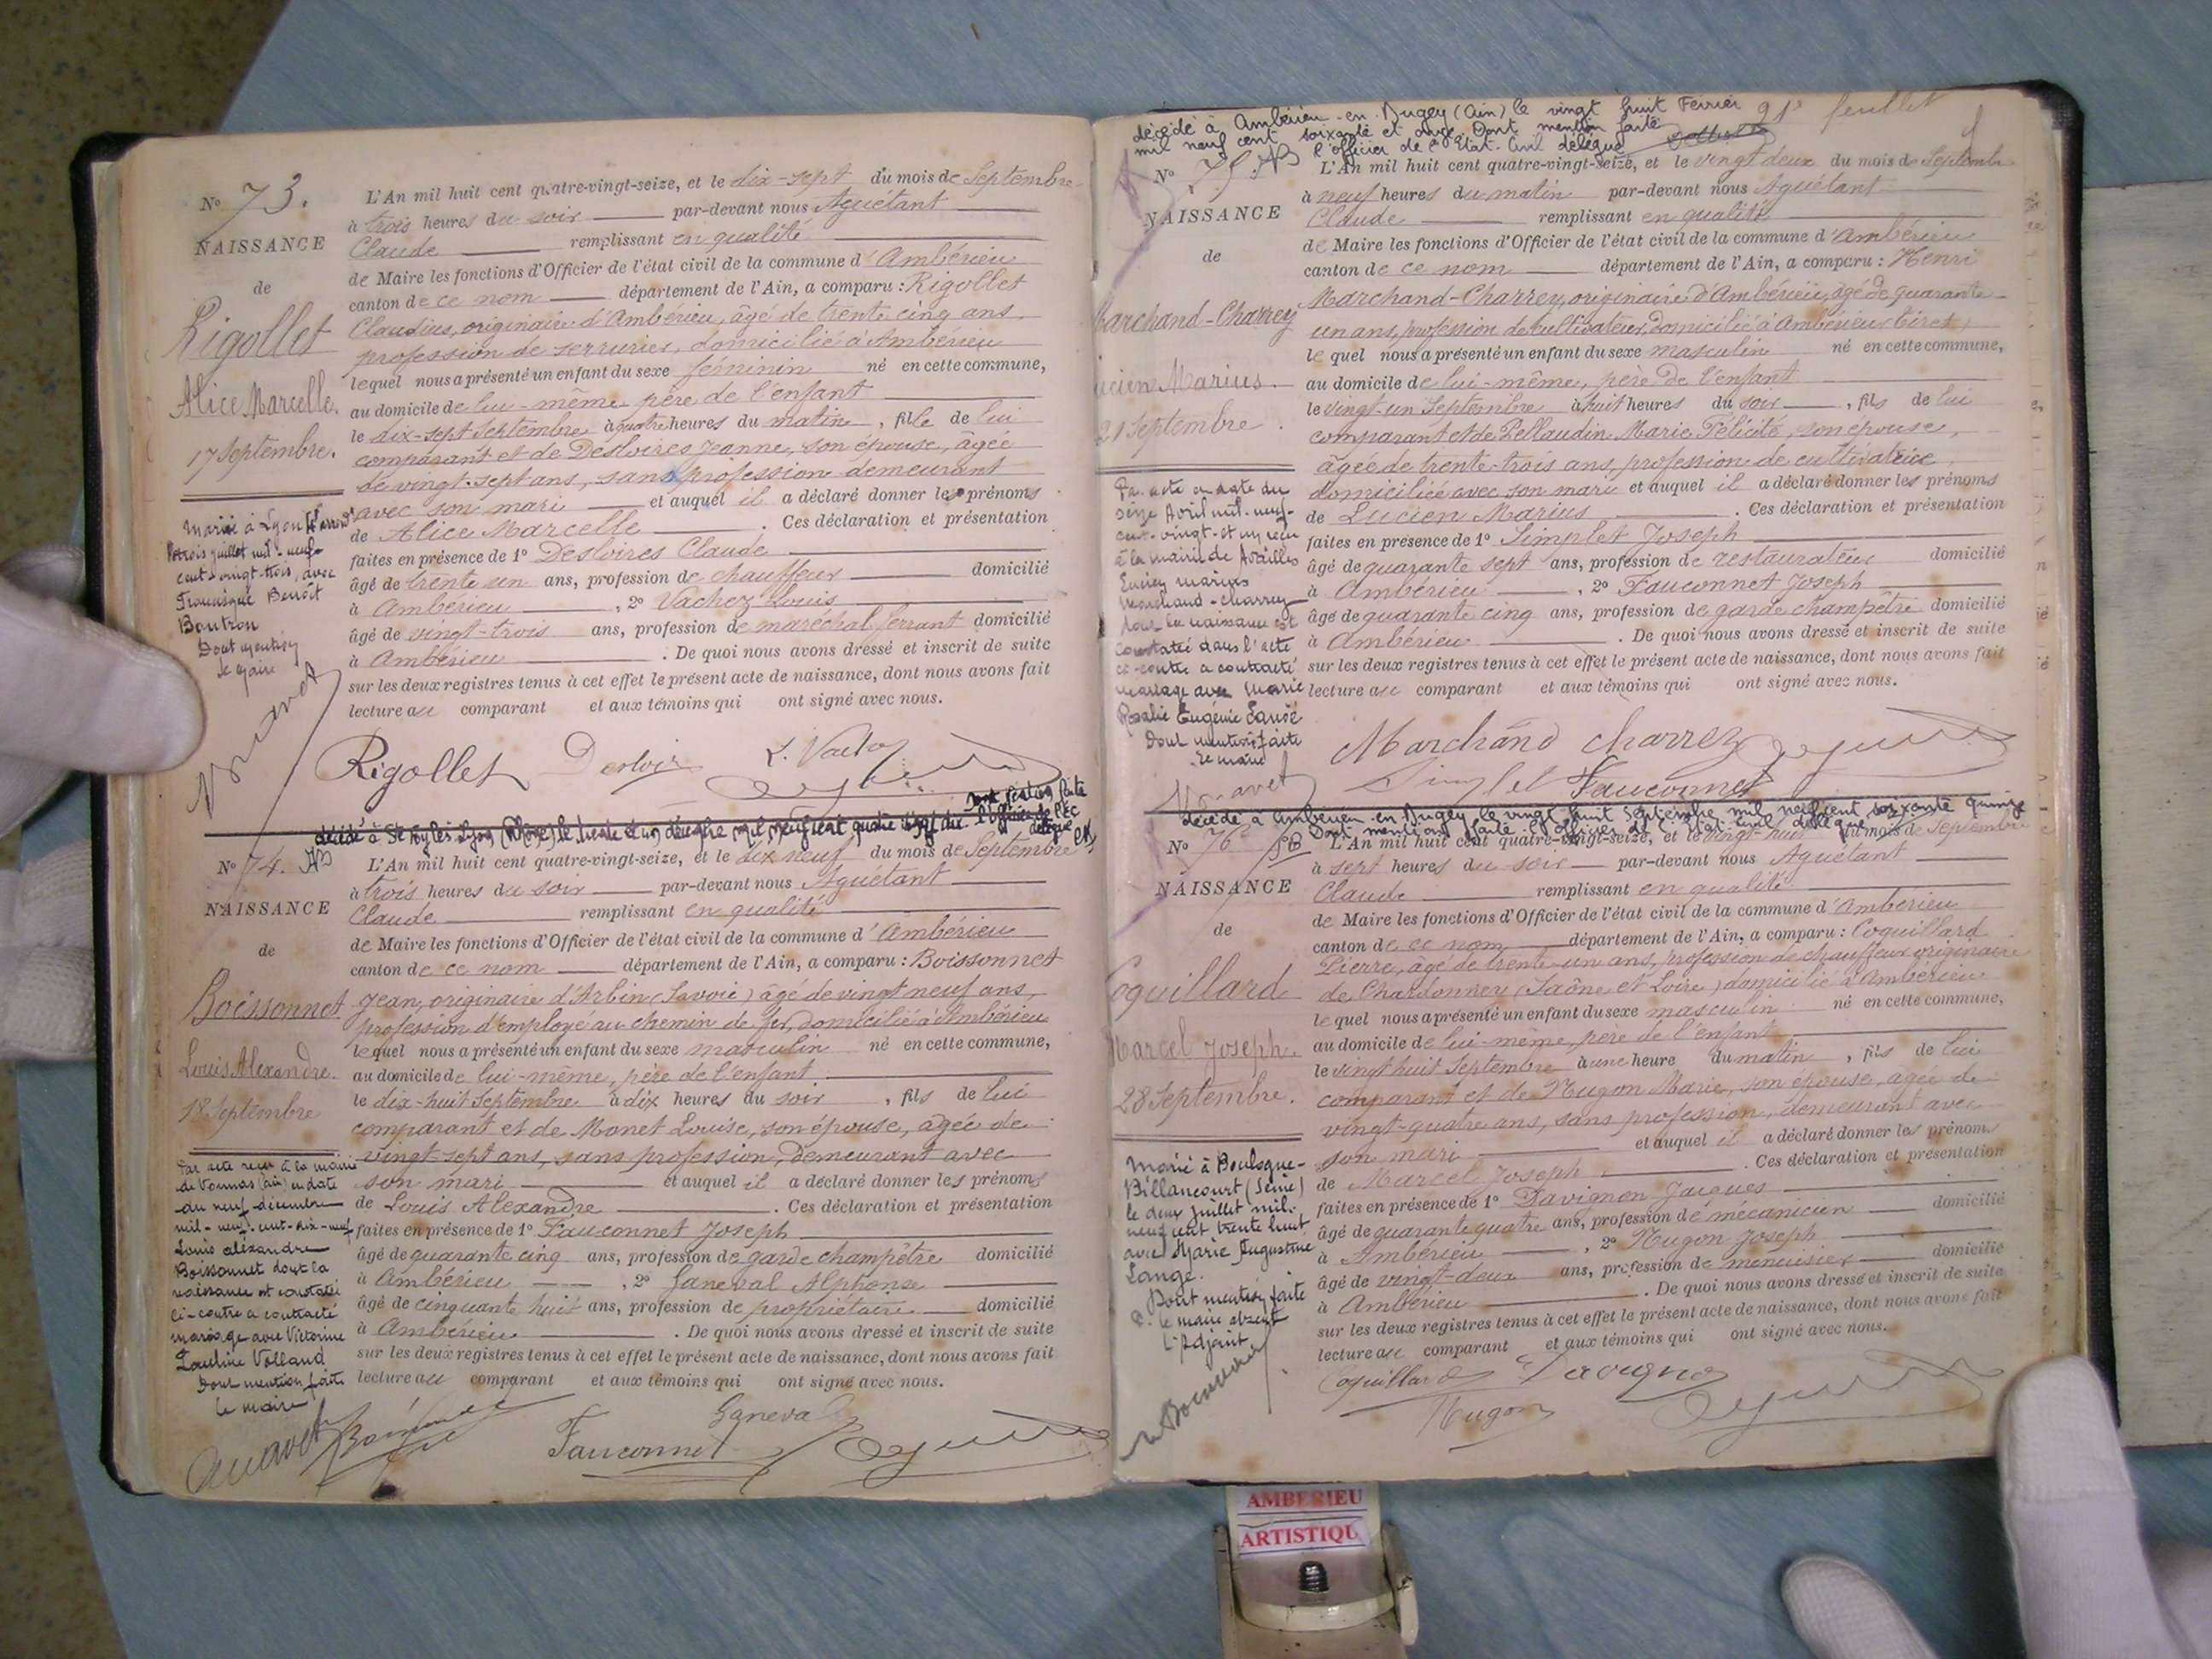 Nº 73.
NAISSANCE
de
Rigollet
Alice Marcelle.
17 Septembre.
Marié à Lyon
trois juillet mil-neuf-
cent-vingt-trois avec
Francisque Benoît
Boutron
Dont mention
le Maire
L'An mil huit cent quatre-vingt-seize, et le dix-sept du mois de Septembre
à trois heures du soir par-devant nous Aguétant
Claude remplissant en qualité
de Maire les fonctions d'Officier de l'état civil de la commune d'Ambérieu
canton de ce nom département de l'Ain, a comparu : Rigollet
Claudius, originaire d'Ambérieu, âgé de trente cinq ans,
profession de serrurier, domicilié à Ambérieu
lequel nous a présenté un enfant du sexe féminin né en cette commune,
au domicile de lui-même père de l'enfant
le dix-sept Septembre à quatre heures du matin, fille de lui
comparant et de Desloires Jeanne, son épouse, âgée
de vingt-sept ans, sans profession demeurant
avec son mari et auquel il a déclaré donner les prénoms
de Alice Marcelle. Ces déclaration et présentation
faites en présence de 1º Desloires Claude
âgé de trente un ans, profession de chauffeur domicilié
à Ambérieu, 2º Vachez Louis
âgé de vingt-trois ans, profession de maréchal ferrant domicilié
à Ambérieu. De quoi nous avons dressé et inscrit de suite
sur les deux registres tenus à cet effet le présent acte de naissance, dont nous avons fait
lecture au comparant et aux témoins qui ont signé avec nous.
Rigollet
décédé à (Rhône) le trente et un mil neuf cent quatre vingt
Nº 74.
NAISSANCE
de
Boissonnet
Louis Alexandre.
18 Septembre
Par acte reçu à la mairie
de Vonnas (Ain) en date
du neuf décembre
mil-neuf-cent-dix-neuf
Louis Alexandre
Boissonnet dont la
naissance est constatée
ci-contre a contracté
mariage avec Victorine
Pauline Volland
Dont mention faite
le maire
L'An mil huit cent quatre-vingt-seize, et le dix neuf du mois de Septembre
à trois heures du soir par-devant nous Aguétant
Claude remplissant en qualité
de Maire les fonctions d'Officier de l'état civil de la commune d'Ambérieu
canton de ce nom département de l'Ain, a comparu : Boissonnet
Jean, originaire d'Arbin (Savoie) âgé de vingt neuf ans,
profession d'employé au chemin de fer, domicilié à Ambérieu
lequel nous a présenté un enfant du sexe masculin né en cette commune,
au domicile de lui-même, père de l'enfant
le dix-huit Septembre à dix heures du soir, fils de lui
comparant et de Monet Louise, son épouse, âgée de
vingt sept ans, sans profession, demeurant avec
son mari et auquel il a déclaré donner les prénoms
de Louis Alexandre. Ces déclaration et présentation
faites en présence de 1º Fauconnet Joseph
âgé de quarante cinq ans, profession de garde champêtre domicilié
à Ambérieu, 2º Janeval Alphonse
âgé de cinquante huit ans, profession de propriétaire domicilié
à Ambérieu. De quoi nous avons dressé et inscrit de suite
sur les deux registres tenus à cet effet le présent acte de naissance, dont nous avons fait
lecture au comparant et aux témoins qui ont signé avec nous.
Fauconnet
21e feuillet
décédé à Ambérieu-en-Bugey (Ain) le vingt huit Février
mil neuf cent soixante et onze. Dont mention faite
l'officier de l'Etat-Civil délégué
Nº 75.
NAISSANCE
de
Marchand-Charrey
Lucien Marius.
21 Septembre.
Par acte en date du
seize Avril mil-neuf-
cent-vingt-et-un reçu
à la mairie de
Lucien marius
Marchand-Charrey
dont la naissance est
constatée dans l'acte
ci-contre a contracté
mariage avec Marie
Rosalie Eugénie
Dont mention faite
Le maire
L'An mil huit cent quatre-vingt-seize, et le vingt deux du mois de Septembre
à neuf heures du matin par-devant nous Aguétant
Claude remplissant en qualité
de Maire les fonctions d'Officier de l'état civil de la commune d'Ambérieu
canton de ce nom département de l'Ain, a comparu : Henri
Marchand-Charrey, originaire d'Ambérieu, âgé de quarante-
un ans, profession de cultivateur, domicilié à Ambérieu (Tiret)
lequel nous a présenté un enfant du sexe masculin né en cette commune,
au domicile de lui-même, père de l'enfant
le vingt-un Septembre à huit heures du soir, fils de lui
comparant et de Pellaudin Marie Félicité, son épouse,
âgée de trente-trois ans, profession de cultivatrice,
domiciliée avec son mari et auquel il a déclaré donner les prénoms
de Lucien Marius. Ces déclaration et présentation
faites en présence de 1º Simplet Joseph
âgé de quarante sept ans, profession de restaurateur domicilié
à Ambérieu, 2º Fauconnet Joseph
âgé de quarante cinq ans, profession de garde champêtre domicilié
à Ambérieu. De quoi nous avons dressé et inscrit de suite
sur les deux registres tenus à cet effet le présent acte de naissance, dont nous avons fait
lecture au comparant et aux témoins qui ont signé avec nous.
Marchand Charrey
Simplet Fauconnet
décédé à Ambérieu-en-Bugey le vingt huit Septembre mil neuf cent soixante quinze
Dont mention faite l'officier de l'Etat civil délégué
Nº 76
NAISSANCE
de
Coquillard
Marcel Joseph.
28 Septembre.
Marié à Boulogne-
Billancourt (Seine)
le deux juillet mil-
neuf cent trente huit
avec Marie Augustine
Lange.
Dont mention faite
le maire absent
l'Adjoint
L'An mil huit cent quatre-vingt-seize, et le vingt-huit du mois de Septembre
à sept heures du soir par-devant nous Aguétant
Claude remplissant en qualité
de Maire les fonctions d'Officier de l'état civil de la commune d'Ambérieu
canton de ce nom département de l'Ain, a comparu : Coquillard
Pierre, âgé de trente-un ans, profession de chauffeur originaire
de Chardonnay (Saône et Loire) domicilié à Ambérieu
lequel nous a présenté un enfant du sexe masculin né en cette commune,
au domicile de lui-même, père de l'enfant
le vingt huit Septembre à une heure du matin, fils de lui
comparant et de Nugon Marie, son épouse, âgée de
vingt-quatre ans, sans profession, demeurant avec
son mari et auquel il a déclaré donner les prénoms
de Marcel Joseph. Ces déclaration et présentation
faites en présence de 1º Davignon Jacques
âgé de quarante quatre ans, profession de mécanicien domicilié
à Ambérieu, 2º Nugon Joseph
âgé de vingt-deux ans, profession de menuisier domicilié
à Ambérieu. De quoi nous avons dressé et inscrit de suite
sur les deux registres tenus à cet effet le présent acte de naissance, dont nous avons fait
lecture au comparant et aux témoins qui ont signé avec nous.
Coquillard Davignon
Nugon
AMBERIEU
ARTISTIQU